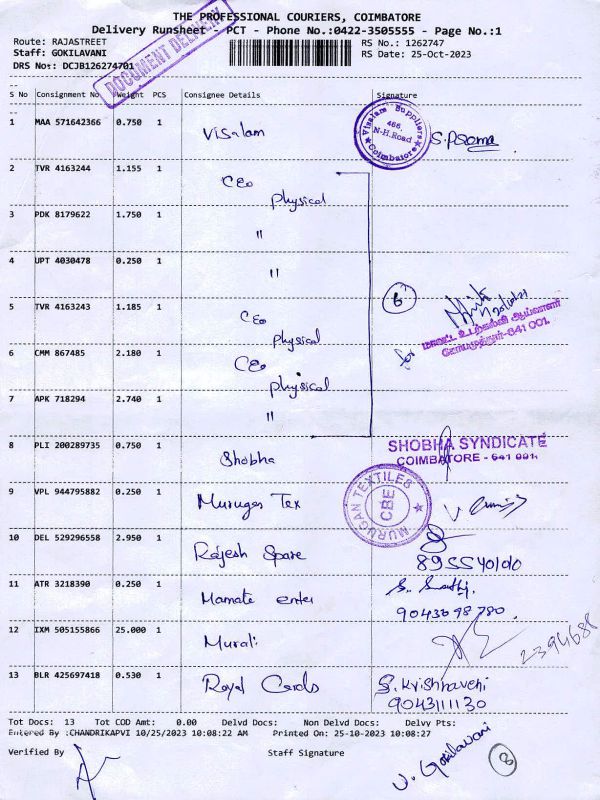 THE PROFESSIONAL COURIERS, COIMBATORE
Delivery Runsheet - PCT - Phone No.:0422-3505555 - Page No.:1
Route: RAJASTREET RS No.: 1262747
Staff: GOKILAVANI RS Date: 25-Oct-2023
DRS No: DCJB126274701
DOCUMENT DELIVERY
S No Consignment No Weight PCS Consignee Details Signature
1 MAA 571642366 0.750 1 Visalam
Visalam Suppliers
466,
N-H.Road
Coimbatore
2 TVR 4163244 1.155 1 CEO
Physical
3 PDK 8179622 1.750 1 "
4 UPT 4030478 0.250 1 "
6
5 TVR 4163243 1.185 1 CEO
Physical
for
மாவட்ட
கோயமுத்தூர்-641 001.
6 CMM 867485 2.180 1 CEO
Physical
7 APK 718294 2.740 1 "
8 PLI 200289735 0.750 1 Shobha
SHOBHA SYNDICATE
COIMBATORE - 641 001.
9 VPL 944795882 0.250 1 Murugan Tex
MURUGAN TEXTILES
CBE
10 DEL 529296558 2.950 1 Rajesh Spare
11 ATR 3218390 0.250 1 Mamate enter
12 IXM 505155866 25.000 1 Murali
2394688
13 BLR 425697418 0.530 1 Royal Cards S. Krishnaveni
9043111130
Tot Docs: 13 Tot COD Amt: 0.00 Delvd Docs: Non Delvd Docs: Delvy Pts:
Entered By :CHANDRIKAPVI 10/25/2023 10:08:22 AM Printed On: 25-10-2023 10:08:27
Verified By Staff Signature
V. Gokilavani
8